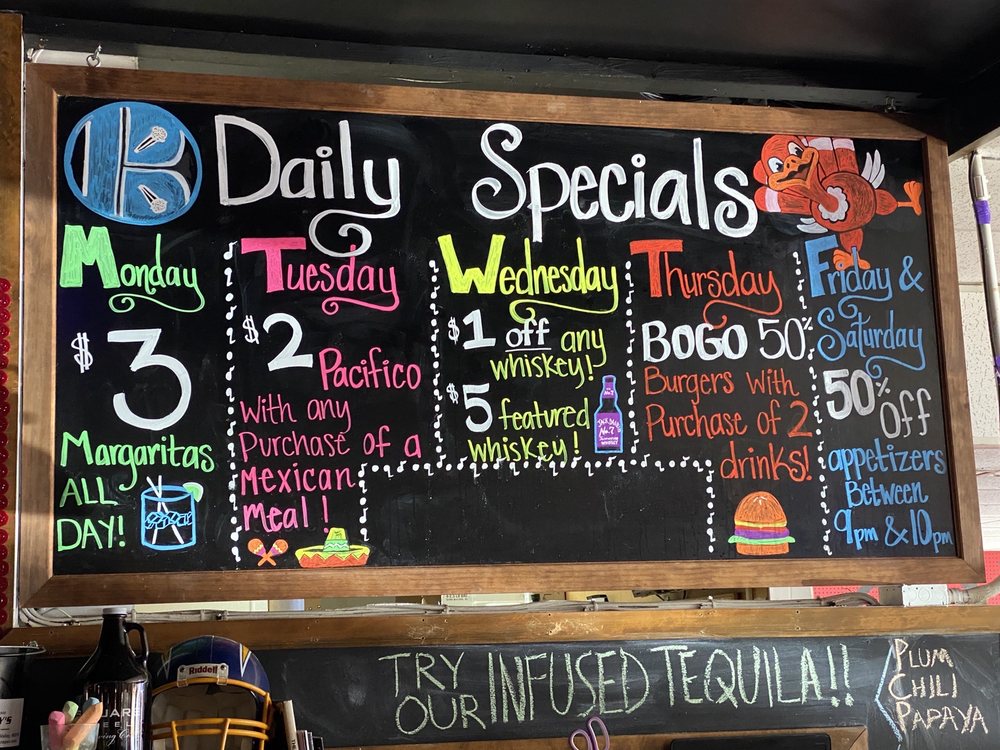 K
Daily Specials
Monday
$3
Margaritas
ALL
DAY!
Tuesday
$2
Pacifico
with any
Purchase of a
Mexican
Meal!
Wednesday
$1 off any
whiskey!
$5 featured
whiskey!
JACK DANIEL'S
No. 7
Thursday
BOGO 50%
Burgers with
Purchase of 2
drinks!
Friday &
Saturday
50% Off
appetizers
Between
9pm & 10pm
TRY
OUR INFUSED TEQUILA!!
PLUM
CHILI
PAPAYA
Riddell